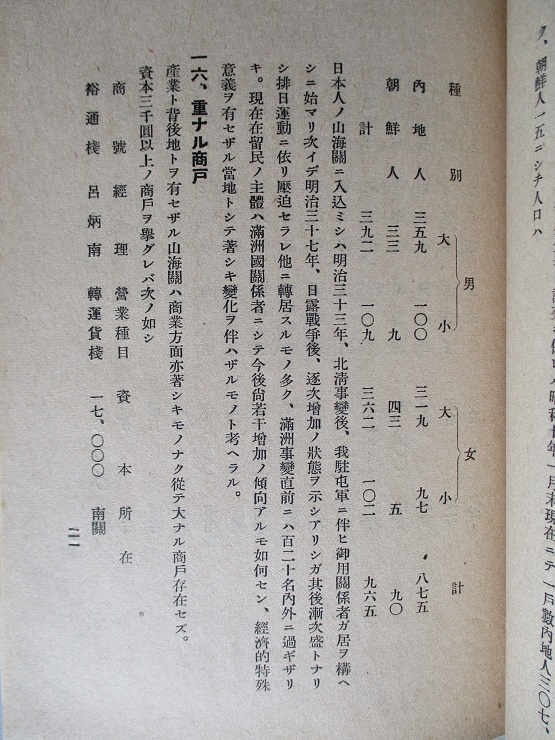 昭和十年一月末現在ニテ戶數內地人三〇七、
ク、朝鮮人一五ニシテ人口ハ
種別 男 女 計
大 小 大 小
內地人 三五九 一〇〇 三一九 九七 八七五
朝鮮人 三三 九 四三 五 九〇
計 三九二 一〇九 三六二 一〇二 九六五
日本人ノ山海關ニ入込ミシハ明治三十三年、北淸事變後、我駐屯軍ニ伴ヒ御用關係者ガ居ヲ構ヘ
シニ始マリ次イデ明治三十七年、日露戰爭後、逐次增加ノ狀態ヲ示シアリシガ其後漸次盛トナリ
シ排日運動ニ依リ壓迫セラレ他ニ轉居スルモノ多ク、滿洲事變直前ニハ百二十名內外ニ過ギザリ
キ。現在在留民ノ主體ハ滿洲國關係者ニシテ今後尙若干增加ノ傾向アルモ如何セン、經濟的特殊
意義ヲ有セザル當地トシテ著シキ變化ヲ伴ハザルモノト考ヘラル。
一六、重ナル商戶
產業ト背後地トヲ有セザル山海關ハ商業方面亦著シキモノナク從テ大ナル商戶存在セズ。
資本三千圓以上ノ商戶ヲ擧グレバ次ノ如シ
商號 經理 營業種目 資本 所在
裕通棧 呂炳南 轉運貨棧 一七、〇〇〇 南關
二一